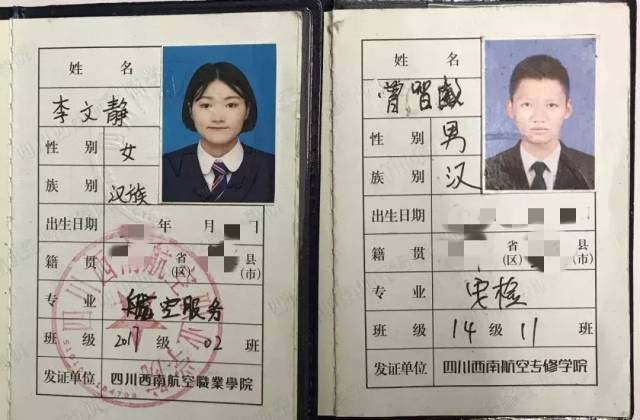 姓 名
李文静
性 别 女
族 别 汉族
出生日期 年 月 日
籍 贯 省(区) 县(市)
专 业 航空服务
班 级 2017 级 02 班
发证单位 四川西南航空職業學院
四川西南航空
姓 名
曾智
性 别 男
族 别 汉
出生日期
籍 贯 省(区) 县(市)
专 业 安检
班 级 14 级 11 班
发证单位 四川西南航空专修学院